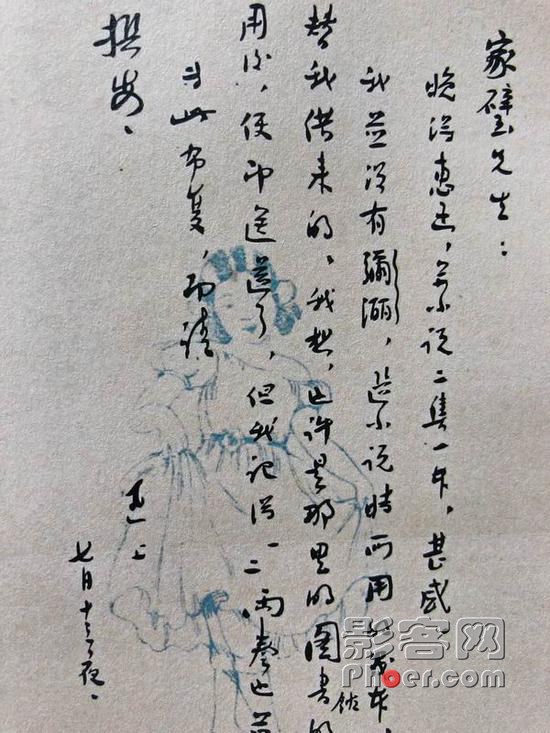 家璧先生：
晚得惠函，并小说二集一本，甚感。
我並没有彌洒，选小说时所用的原本，
替我借来的，我想，也许是那里的图书馆的
用后，便即送還了，但我记得一二两
专此布复，即請
撰安。
迅上
七月十三夜。
影客网
PIioer.com